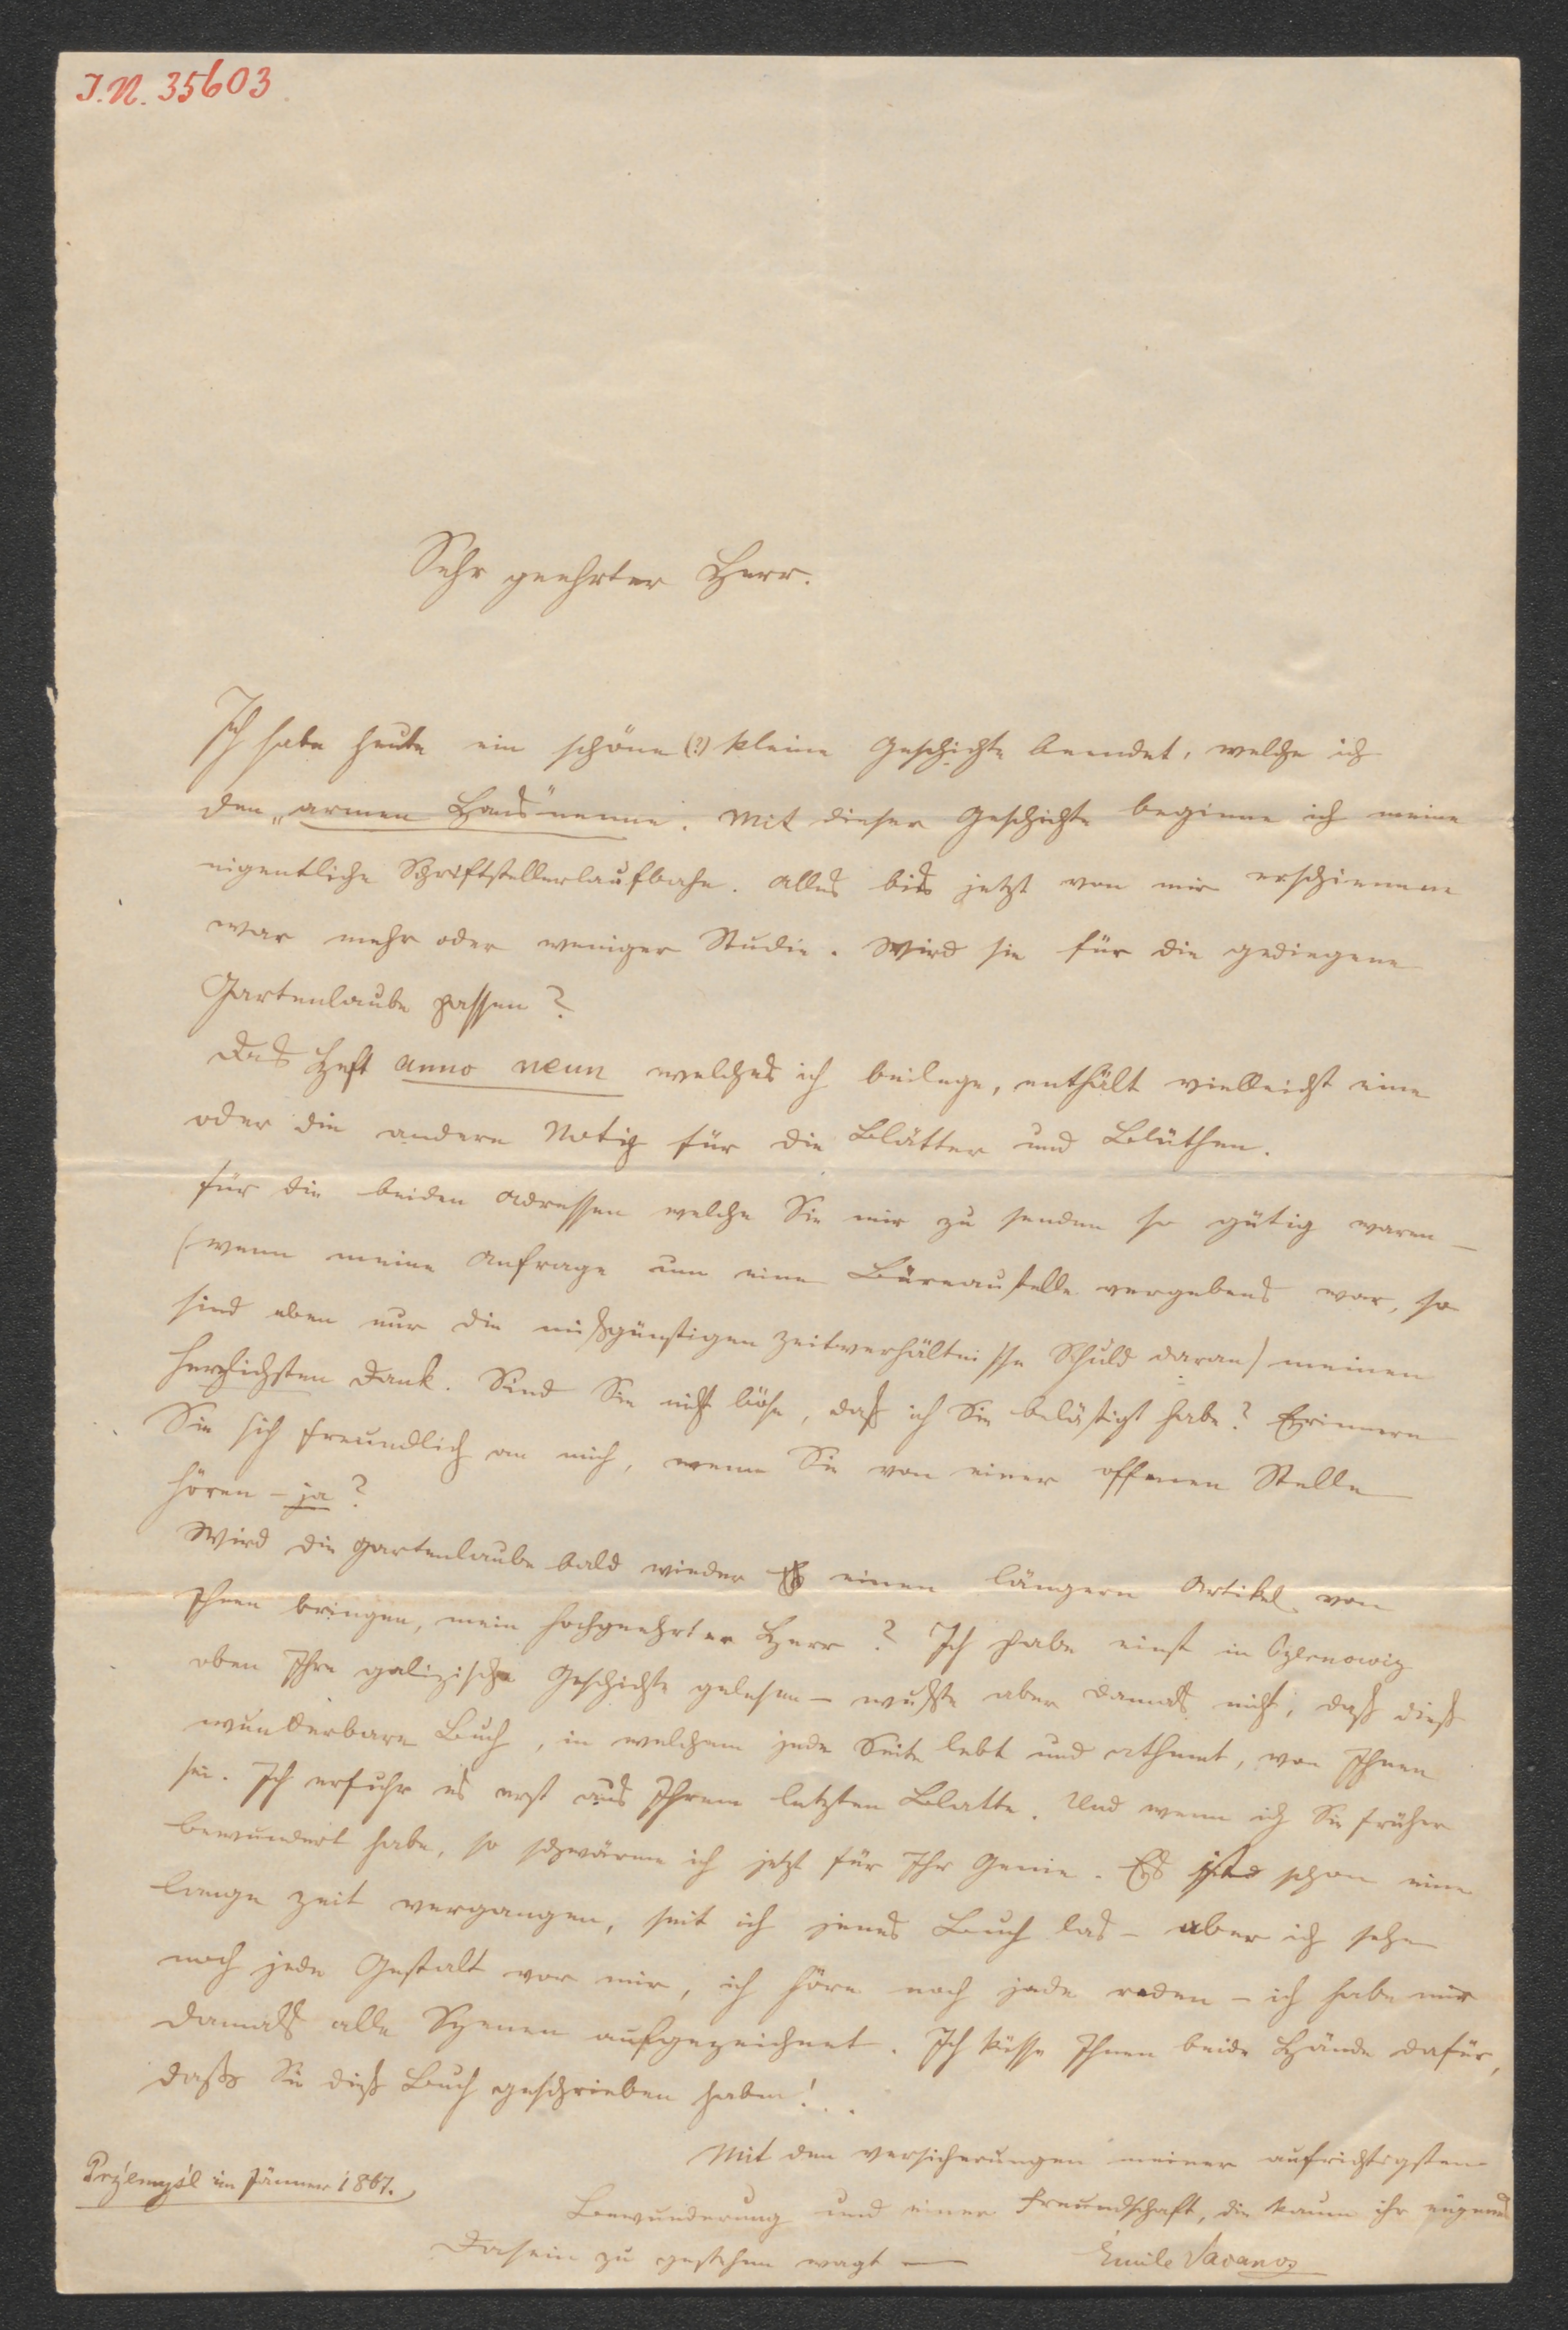 I.N. 35603
Sehr geehrter Herr.
Ich habe heute ein schöne (?) kleine Geschichte beendet, welche ich
den „armen Hans“ nenne. Mit dieser Geschichte beginne ich meine
eigentliche Schriftstellerlaufbahn. Alles bis jetzt von mir erschienene
war mehr oder weniger Studie. Wird sie für die gediegene
Gartenlaube passen?
Das Heft anno neun welches ich beilege, enthält vielleicht eine
oder die andere Notiz für die Blätter und Blüthen.
Für die beiden Adressen welche Sie mir zu senden so gütig waren –
(wenn meine Anfrage um eine Büreaustelle vergebens war, so
sind eben nur die mißgünstigen Zeitverhältnisse Schuld daran) meinen
herzlichsten Dank. Sind Sie nicht böse, daß ich Sie belästigt habe? Erinnern
Sie sich freundlich an mich, wenn Sie von einer offenen Stelle
hören – ja?
Wird die Gartenlaube bald wieder einen längern Artikel von
Ihnen bringen, mein hochgeehrter Herr? Ich habe einst in Czernowiz
oben Ihre galizische Geschichte gelesen – wußte aber damals nicht, daß dieß
wunderbare Buch, in welchem jede Seite lebt und athmet, von Ihnen
sei. Ich erfuhr es erst aus Ihrem letzten Blatte. Und wenn ich Sie früher
bewundert habe, so schwärme ich jetzt für Ihr Genie. Es ist schon eine
lange Zeit vergangen, seit ich jenes Buch las – aber ich sehe
noch jede Gestalt vor mir, ich höre noch jede reden – ich habe mir
damals alle Szenen aufgezeichnet. Ich küsse Ihnen beide Hände dafür,
daß Sie dieß Buch geschrieben haben!..
Mit den Versicherungen meiner aufrichtigsten
Przemysl im Jänner 1867.
Bewunderung und einer Freundschaft, die kaum ihr eigenes
Dasein zu gestehen wagt —
Emile Vacano